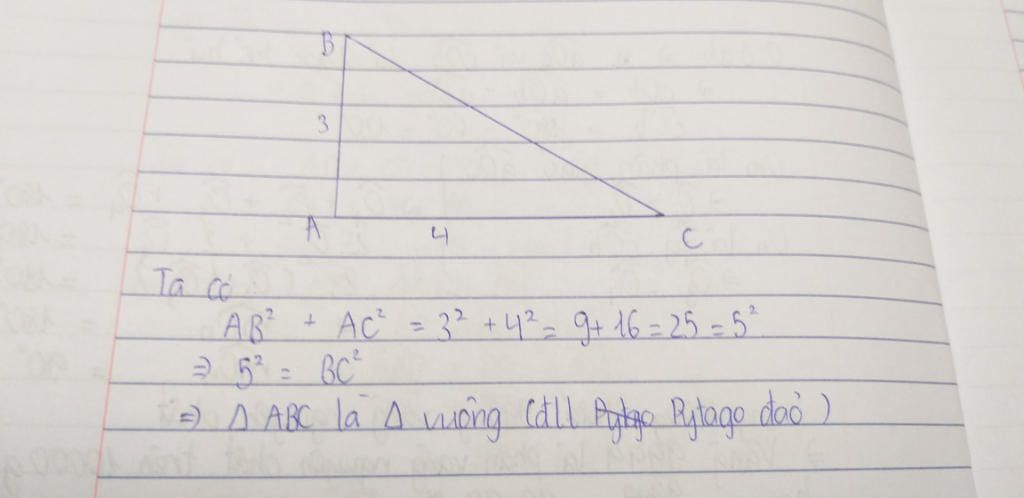 B
3
A 4 C
Ta có
AB² + AC² = 3² + 4² = 9 + 16 = 25 = 5²
⇒ 5² = BC²
⇒ Δ ABC là Δ vuông (đll Pytago đảo)